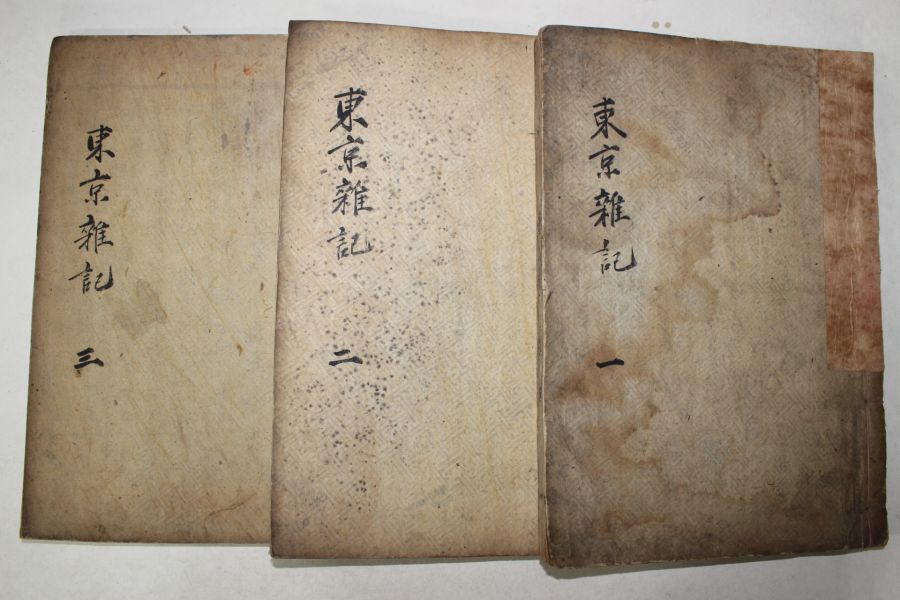 東京雜記
一
東京雜記
二
東京雜記
三